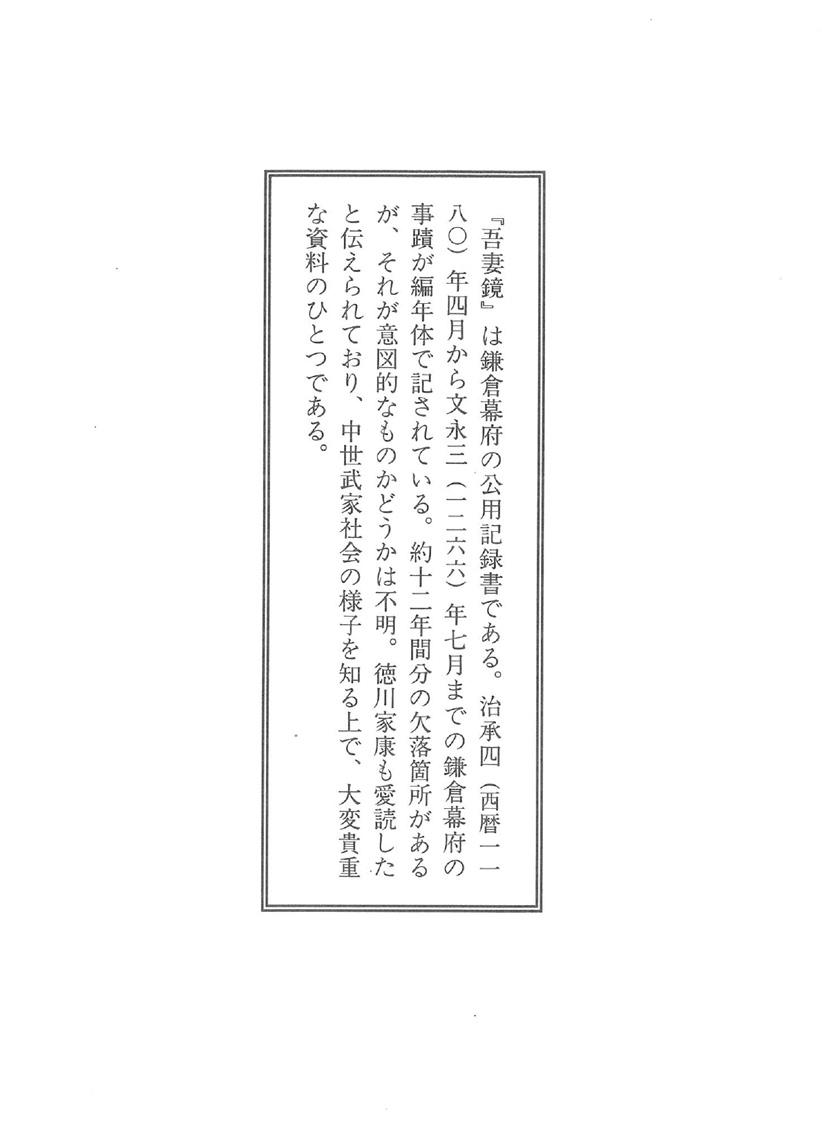 『吾妻鏡』は鎌倉幕府の公用記録書である。治承四（西暦一一
八〇）年四月から文永三（一二六六）年七月までの鎌倉幕府の
事蹟が編年体で記されている。約十二年間分の欠落箇所がある
が、それが意図的なものかどうかは不明。徳川家康も愛読した
と伝えられており、中世武家社会の様子を知る上で、大変貴重
な資料のひとつである。